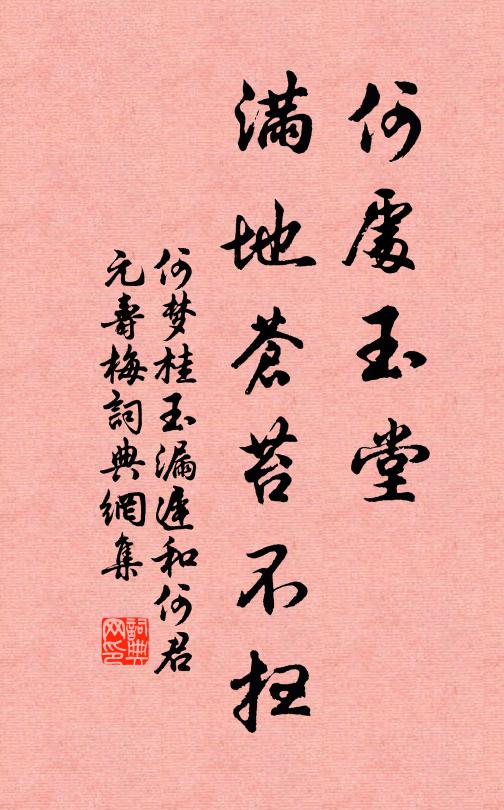 何處玉堂
滿地蒼苔不扫
何梦桂玉漏遲和何君
元壽梅詞典網集
詞典
网印